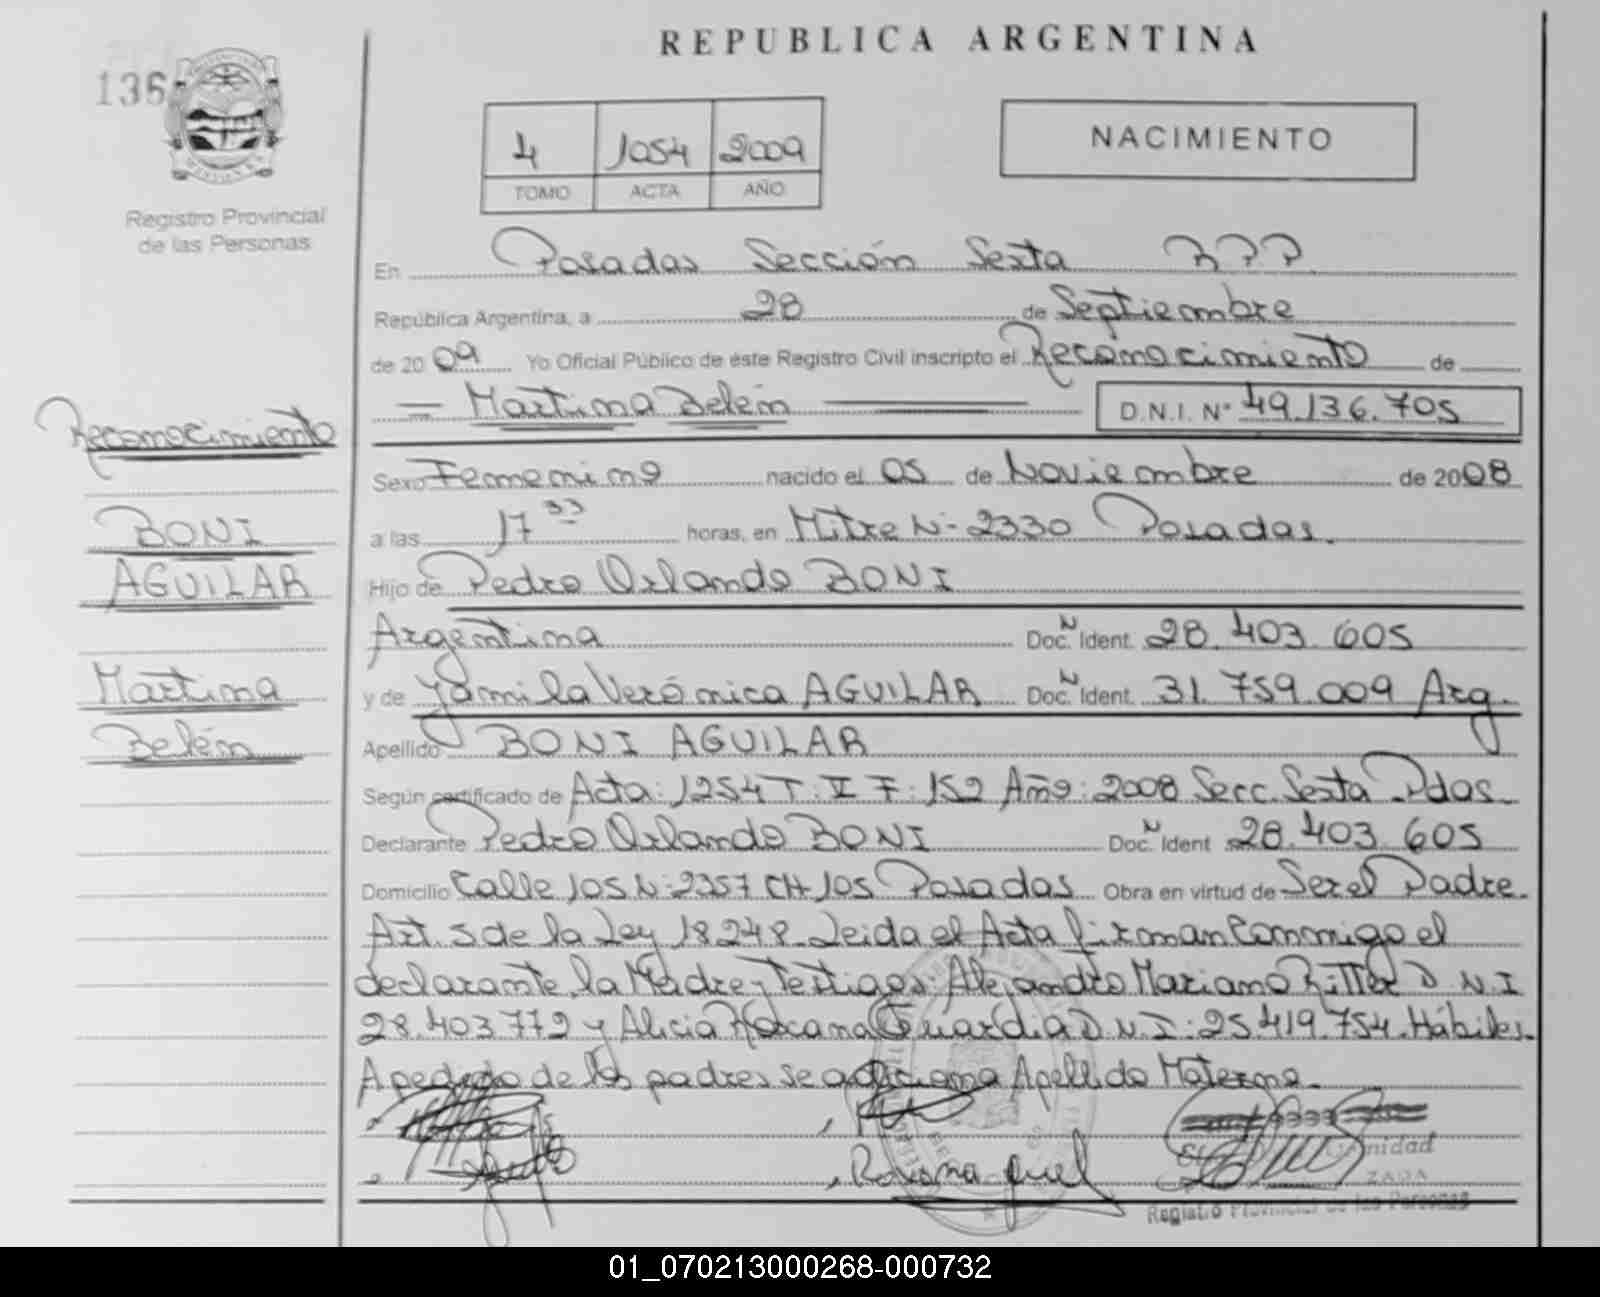 REPUBLICA ARGENTINA
136
4 1054 2009
TOMO ACTA AÑO
NACIMIENTO
Registro Provincial
de las Personas
En Posadas Sección Sexta R P P
República Argentina, a 28 de Septiembre
de 2009 Yo Oficial Público de éste Registro Civil inscripto el Reconocimiento de
Martina Belén D.N.I. Nº 49.136.705
Reconocimiento
BONI
AGUILAR
Martina
Belén
Sexo Femenino nacido el 05 de Noviembre de 2008
a las 17 33 horas, en Mitre Nº 2330 Posadas.
Hijo de Pedro Orlando BONI
Argentina Doc. N Ident. 28.403.605
y de Yamila Verónica AGUILAR Doc. N Ident. 31.759.009 Arg.
Apellido BONI AGUILAR
Según certificado de Acta: 1254 T: V F: 152 Año: 2008 Secc. Sexta Pdas.
Declarante Pedro Orlando BONI Doc. N Ident 28.403.605
Domicilio Calle 105 N: 2357 CH 105 Posadas Obra en virtud de Ser el Padre.
Art. 5 de la Ley 18248. Leida el Acta firman Conmigo el
declarante, la Madre y Testigos: Alejandro Mariano Ritter D.N.I
28.403.772 y Alicia Roxana Guardia D.N.I: 25.419.754. Hábiles.
A pedido de los padres se adiciona Apellido Materno.
Roxana
Registro Provincial de las Personas
01_070213000268-000732